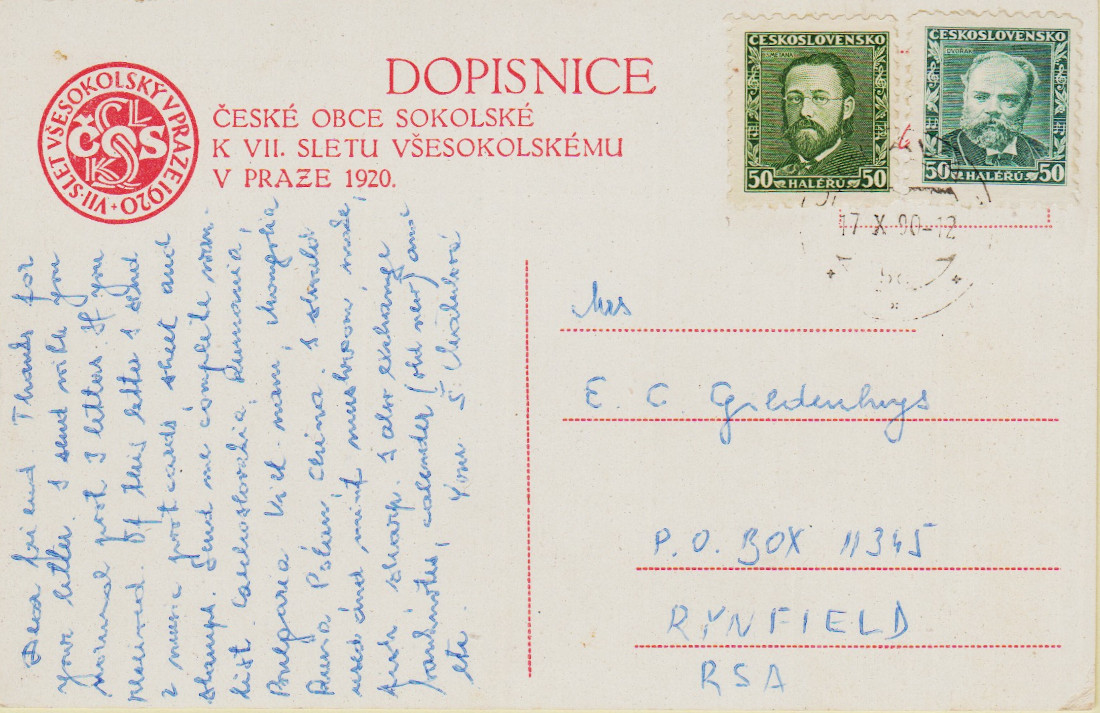 DOPISNICE
ČESKÉ OBCE SOKOLSKÉ
K VII. SLETU VŠESOKOLSKÉMU
V PRAZE 1920.
VII. SLET VŠESOKOLSKÝ V PRAZE 1920
ČOS
ČESKOSLOVENSKO
SMETANA
50 HALÉŘŮ 50
ČESKOSLOVENSKO
DVOŘÁK
50 HALÉŘŮ 50
17 X 90-12
Dear friend. Thanks for
your letter. I send with you
normal post 2 letters. If you
received of this letter I send
2 music post cards sheet and
stamps. Send me complete wan-
list. Czechoslovakia, Rumania,
Bulgaria Viet-nam, Mongolia
China. I
used and mint mushroom, nude,
I also exchange
banknotes, calender (old new) and
etc. Your
Mrs
E C Geldenhuys
P.O. BOX 11345
RYNFIELD
RSA